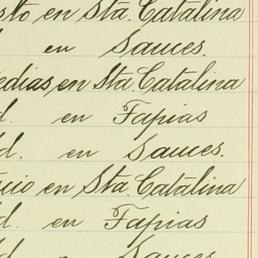 sto en Sta. Catalina
en Sauces.
edias en Sta. Catalina
d. en Tapias
d. en Sauces.
cio en Sta. Catalina
d. en Tapias
d. en Sauces